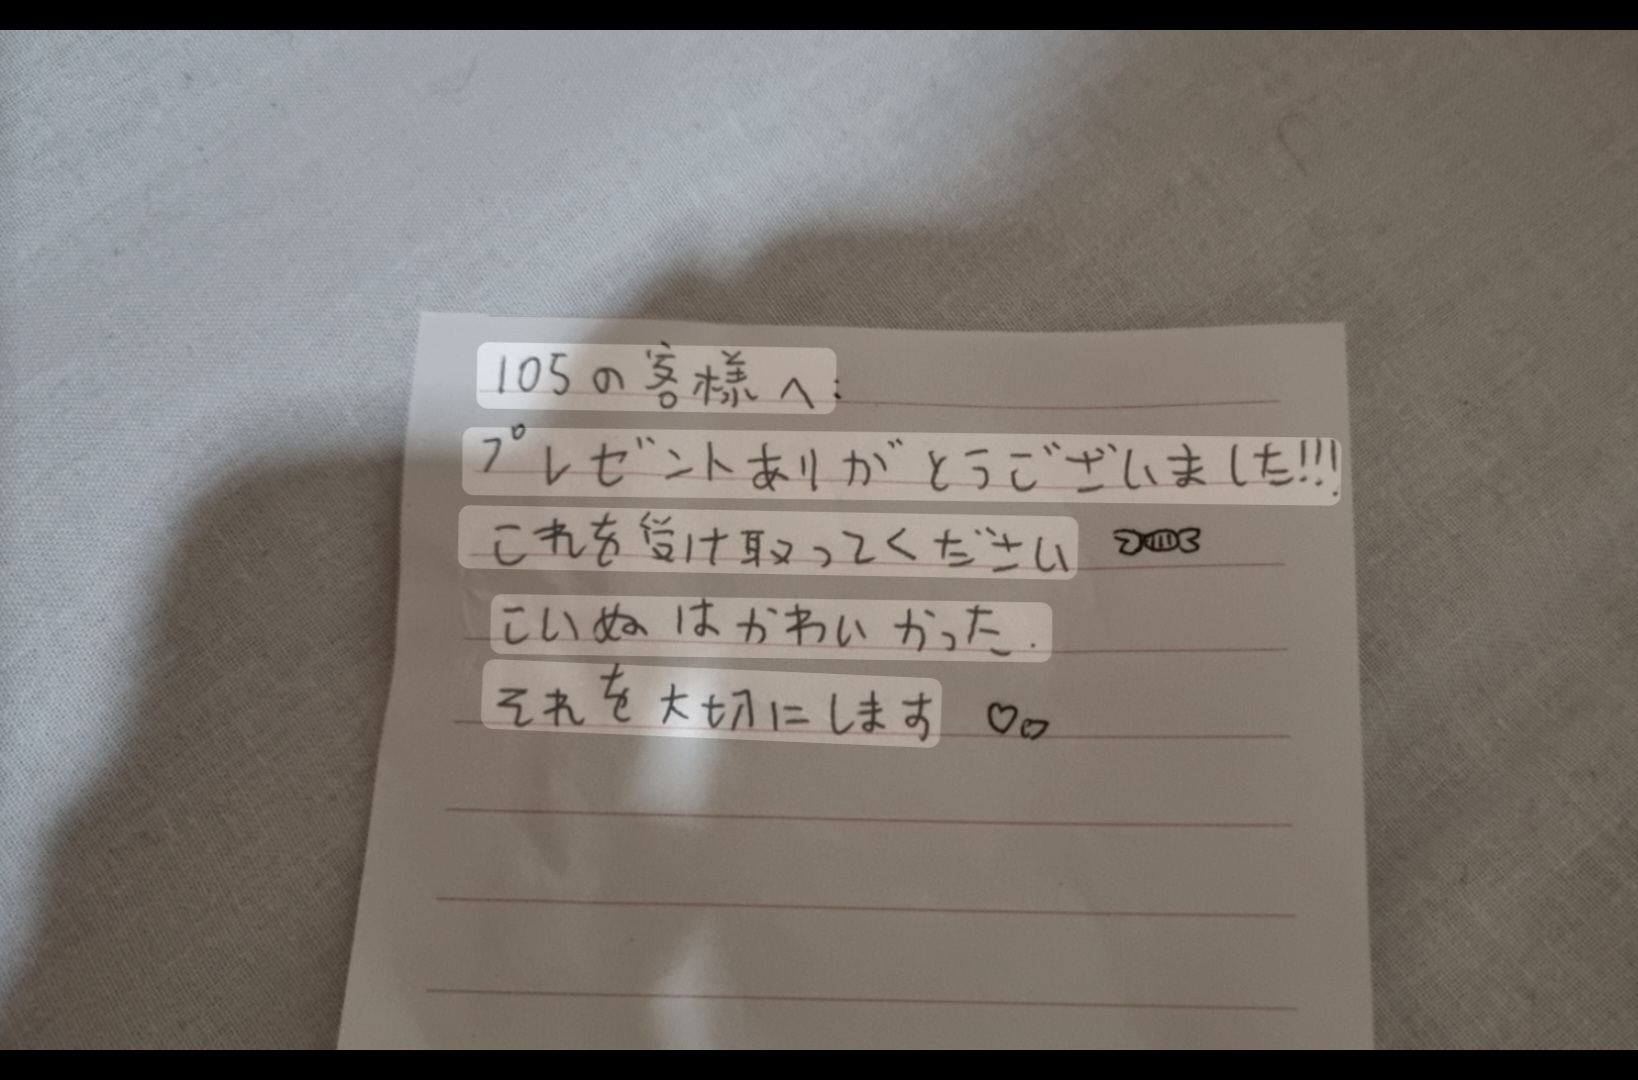 105の客様へ:
プレゼントありがとうございました!!!
これを受け取ってください
こいぬはかわいかった.
それを大切にします